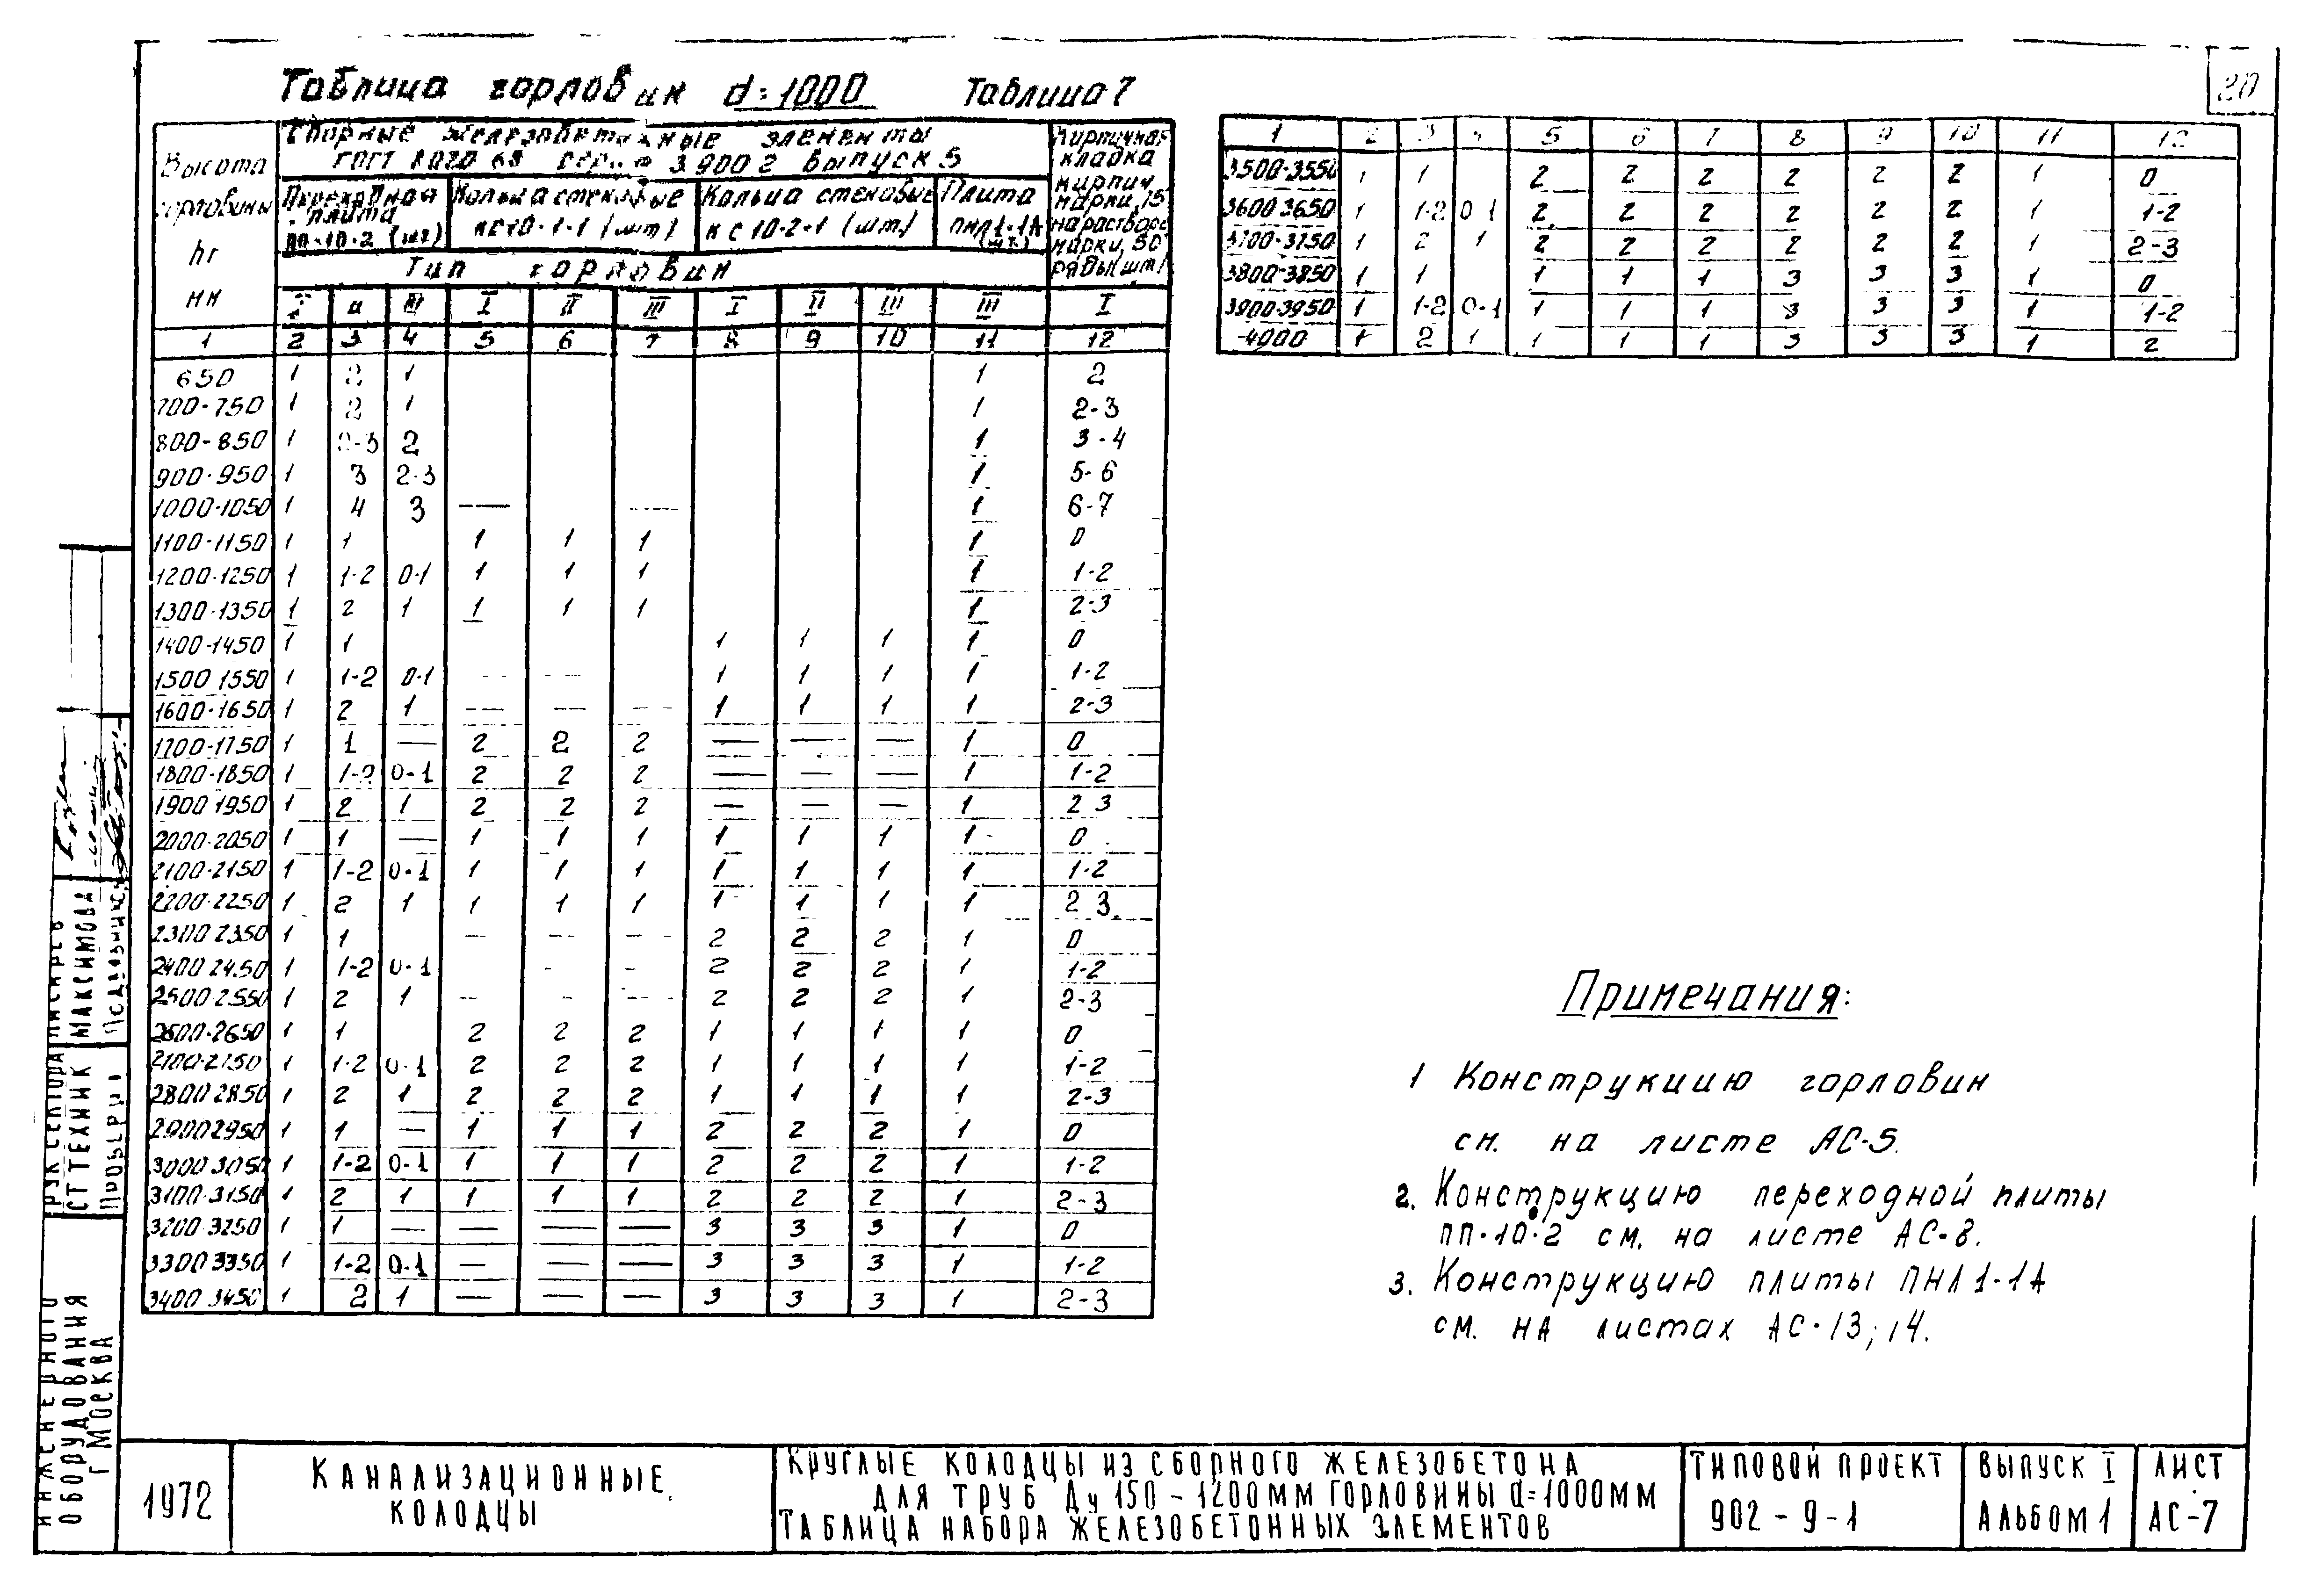 20
Таблица горловин d=1000 Таблица 7
Высота горловины hг мм
Сборные железобетонные элементы
ГОСТ 8020 68 серия 3 900 2 выпуск 5
Переходная плита ПП-10-2 (шт)
Кольца стеновые КС10-1-1 (шт)
Кольца стеновые КС10-2-1 (шт.)
Плита ПНЛ1-1А (шт.)
Кирпичная кладка кирпич марки 75 на растворе марки 50 ряды (шт)
Тип горловин
I II III I II III I II III III I
1 2 3 4 5 6 7 8 9 10 11 12
650 1 2 1 1 2
700-750 1 2 1 1 2-3
800-850 1 2-3 2 1 3-4
900-950 1 3 2-3 1 5-6
1000-1050 1 4 3 — — 1 6-7
1100-1150 1 1 1 1 1 1 0
1200-1250 1 1-2 0-1 1 1 1 1 1-2
1300-1350 1 2 1 1 1 1 1 2-3
1400-1450 1 1 1 1 1 1 0
1500 1550 1 1-2 0-1 — — 1 1 1 1 1-2
1600-1650 1 2 1 — — — 1 1 1 1 2-3
1700-1750 1 1 — 2 2 2 — — — 1 0
1800-1850 1 1-2 0-1 2 2 2 — — — 1 1-2
1900 1950 1 2 1 2 2 2 — — — 1 2 3
2000-2050 1 1 — 1 1 1 1 1 1 1 0
2100-2150 1 1-2 0-1 1 1 1 1 1 1 1 1-2
2200-2250 1 2 1 1 1 1 1 1 1 1 2 3
2300 2350 1 1 — — — 2 2 2 1 0
2400 2450 1 1-2 0-1 - - 2 2 2 1 1-2
2500 2550 1 2 1 — - — 2 2 2 1 2-3
2600-2650 1 1 2 2 2 1 1 1 1 0
2700-2750 1 1-2 0-1 2 2 2 1 1 1 1 1-2
2800 2850 1 2 1 2 2 2 1 1 1 1 2-3
2900 2950 1 1 — 1 1 1 2 2 2 1 0
3000 3050 1 1-2 0-1 1 1 1 2 2 2 1 1-2
3100-3150 1 2 1 1 1 1 2 2 2 1 2-3
3200-3250 1 1 — — — — 3 3 3 1 0
3300 3350 1 1-2 0-1 — — — 3 3 3 1 1-2
3400 3450 1 2 1 — — — 3 3 3 1 2-3
1 2 3 4 5 6 7 8 9 10 11 12
3500-3550 1 1 2 2 2 2 2 2 1 0
3600 3650 1 1-2 0-1 2 2 2 2 2 2 1 1-2
3700-3750 1 2 1 2 2 2 2 2 2 1 2-3
3800-3850 1 1 1 1 1 3 3 3 1 0
3900-3950 1 1-2 0-1 1 1 1 3 3 3 1 1-2
-4000 1 2 1 1 1 1 3 3 3 1 2
Примечания:
1 Конструкцию горловин
см. на листе АС-5.
2. Конструкцию переходной плиты
ПП-10-2 см. на листе АС-8.
3. Конструкцию плиты ПНЛ1-1А
см. на листах АС-13; 14.
РУК СЕКТОРА
СТ ТЕХНИК МАКСИМОВА
ИНЖЕНЕРНОГО
ОБОРУДОВАНИЯ
Г МОСКВА
1972
КАНАЛИЗАЦИОННЫЕ
КОЛОДЦЫ
КРУГЛЫЕ КОЛОДЦЫ ИЗ СБОРНОГО ЖЕЛЕЗОБЕТОНА
ДЛЯ ТРУБ Ду 150-1200ММ ГОРЛОВИНЫ d=1000ММ
ТАБЛИЦА НАБОРА ЖЕЛЕЗОБЕТОННЫХ ЭЛЕМЕНТОВ
ТИПОВОЙ ПРОЕКТ
902-9-1
ВЫПУСК I
АЛЬБОМ 1
ЛИСТ
АС-7